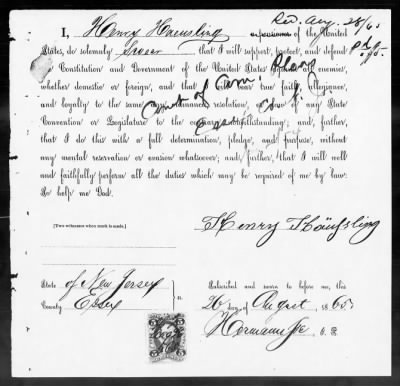 Rec. Aug. 28/65
I, Henry Haeusling of the United
States, do solemnly swear that I will support, protect, and defend
the Constitution and Government of the United States against all enemies,
whether domestic or foreign, and that I will bear true faith, allegiance,
and loyalty to the same, any ordinance, resolution, or law of any State
Convention or Legislature to the contrary notwithstanding; and, further,
that I do this with a full determination, pledge, and purpose, without
any mental reservation or evasion whatsoever; and, further, that I will well
and faithfully perform all the duties which may be required of me by law:
So help me God.
Henry Häusling
[Two witnesses when mark is made.]
State of New Jersey
County Essex
ss.
Subscribed and sworn to before me, this
26 day of August 1865
Hermann